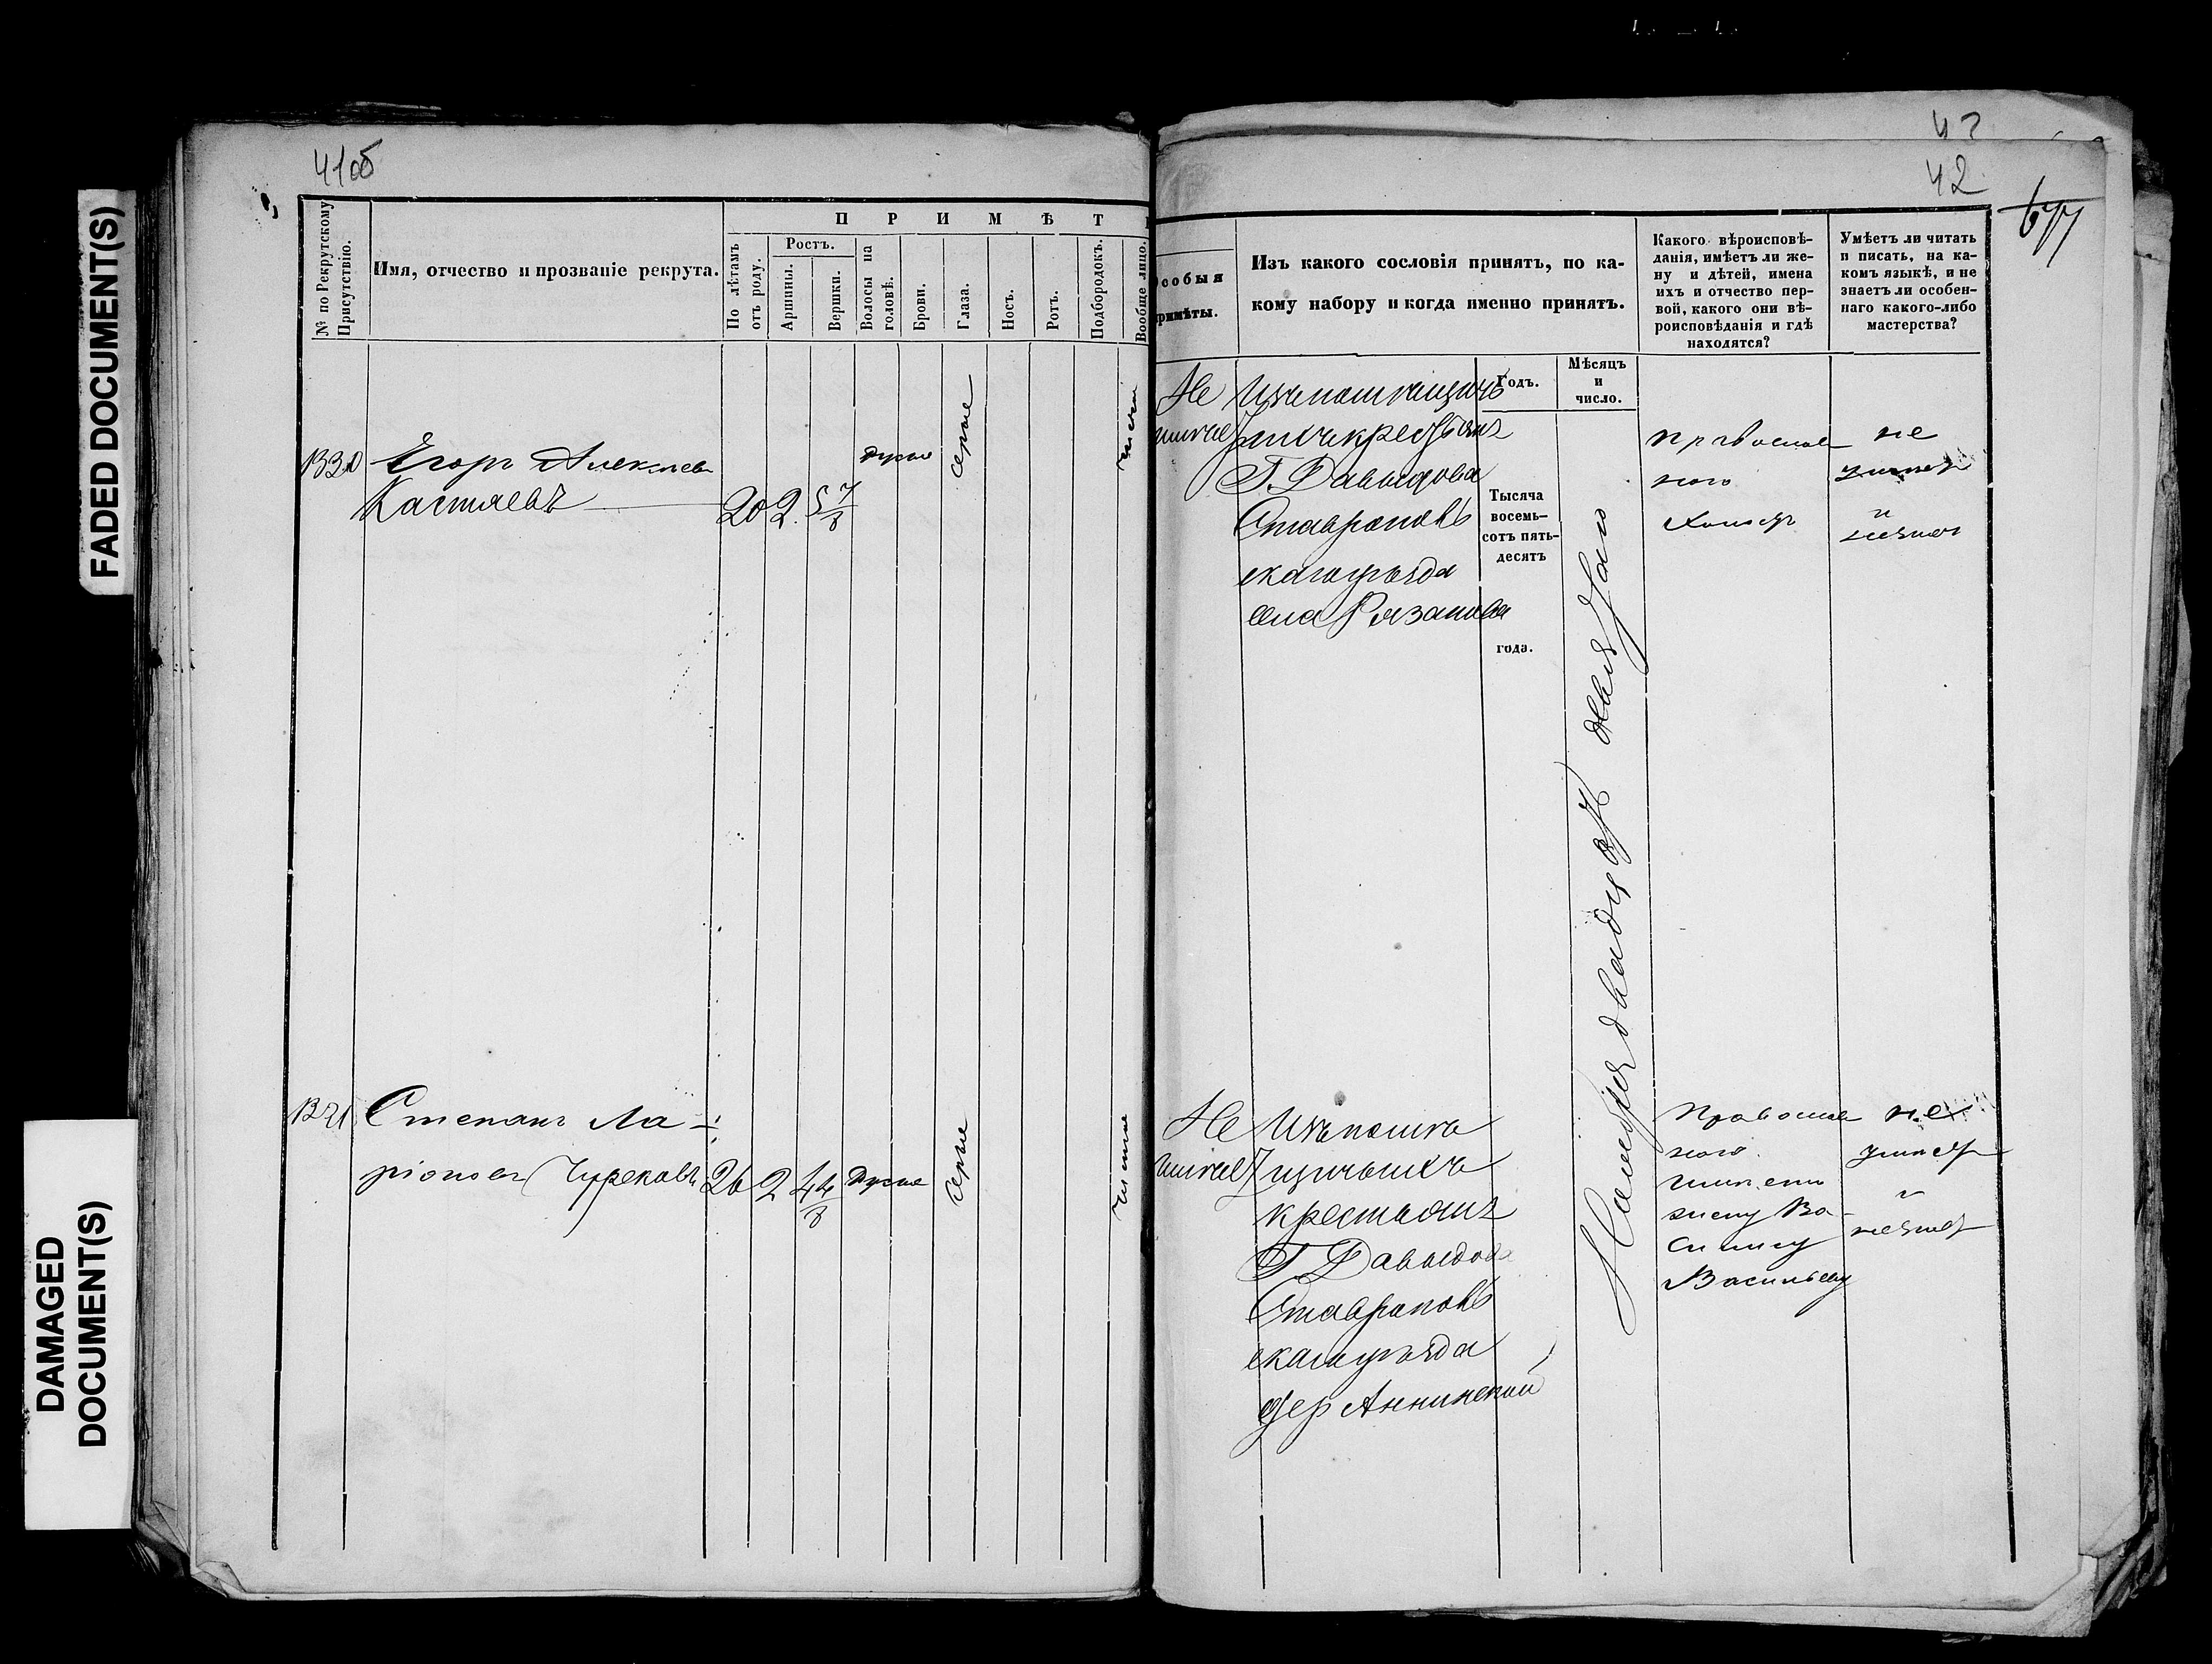 FADED DOCUMENT(S)
DAMAGED
DOCUMENT(S)
41об
№ по Рекрутскому
Присутствію.
Имя, отчество и прозваніе рекрута.
П Р И М Ѣ Т
По лѣтамъ
отъ роду.
Ростъ.
Аршины.
Вершки.
Волосы на
головѣ.
Брови.
Глаза.
Носъ.
Ротъ.
Подбородокъ.
Вообще лицо.
Егоръ Алексѣев
20 2 5 7/8 русые сѣрые чистое
Степанъ Ла-
ріонов Чурековъ 26 2 4 4/8 русые сѣрые чистое
42
особыя
примѣты.
Изъ какого сословія принятъ, по ка-
кому набору и когда именно принятъ.
Годъ.
Мѣсяцъ
и
число.
Какого вѣроисповѣ-
данія, имѣетъ ли же-
ну и дѣтей, имена
ихъ и отчество пер-
вой, какого они вѣ-
роисповѣданія и гдѣ
находятся?
Умѣетъ ли читать
и писать, на ка-
комъ языкѣ, и не
знаетъ ли особен-
наго какого-либо
мастерства?
Не имѣет
Изъ помѣщичь
ихъ крестьянъ
Г. Давыдова
Ставрополь
скаго уѣзда
села Рязанова
Тысяча
восемь-
сотъ пять-
десятъ
года.
Ноября двадцать девятаго
Православ
наго
Холостъ
не
умѣет
и
незнает
Не имѣет
Изъ помѣ
щичьихъ
крестьянъ
Г Давыдова
Ставрополь
скаго уѣзда
дер Аннинской
Православ
наго
имѣет
жену Ва-
силису
Васильеву
не
умѣет
и
незнает